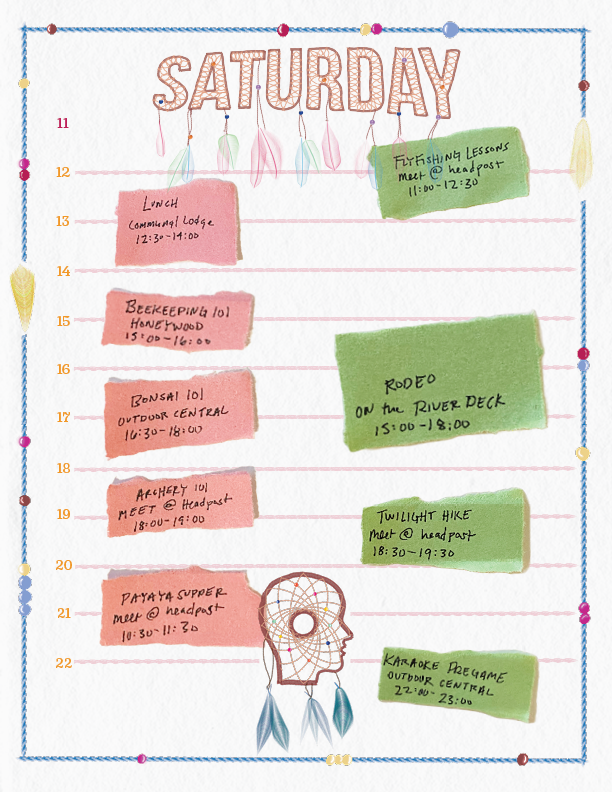 SATURDAY
11
FLYFISHING LESSONS
meet @ headpost
11:00-12:30
12
LUNCH
Communal Lodge
12:30-14:00
13
14
BEEKEEPING 101
HONEYWOOD
15:00-16:00
15
RODEO
ON the RIVER DECK
15:00-18:00
16
BONSAI 101
OUTDOOR CENTRAL
16:30-18:00
17
18
ARCHERY 101
MEET @ Headpost
18:00-19:00
19
TWILIGHT HIKE
meet @ headpost
18:30-19:30
20
PAYAYA SUPPER
meet @ headpost
10:30-11:30
21
22
KARAOKE PREGAME
OUTDOOR CENTRAL
22:00-23:00